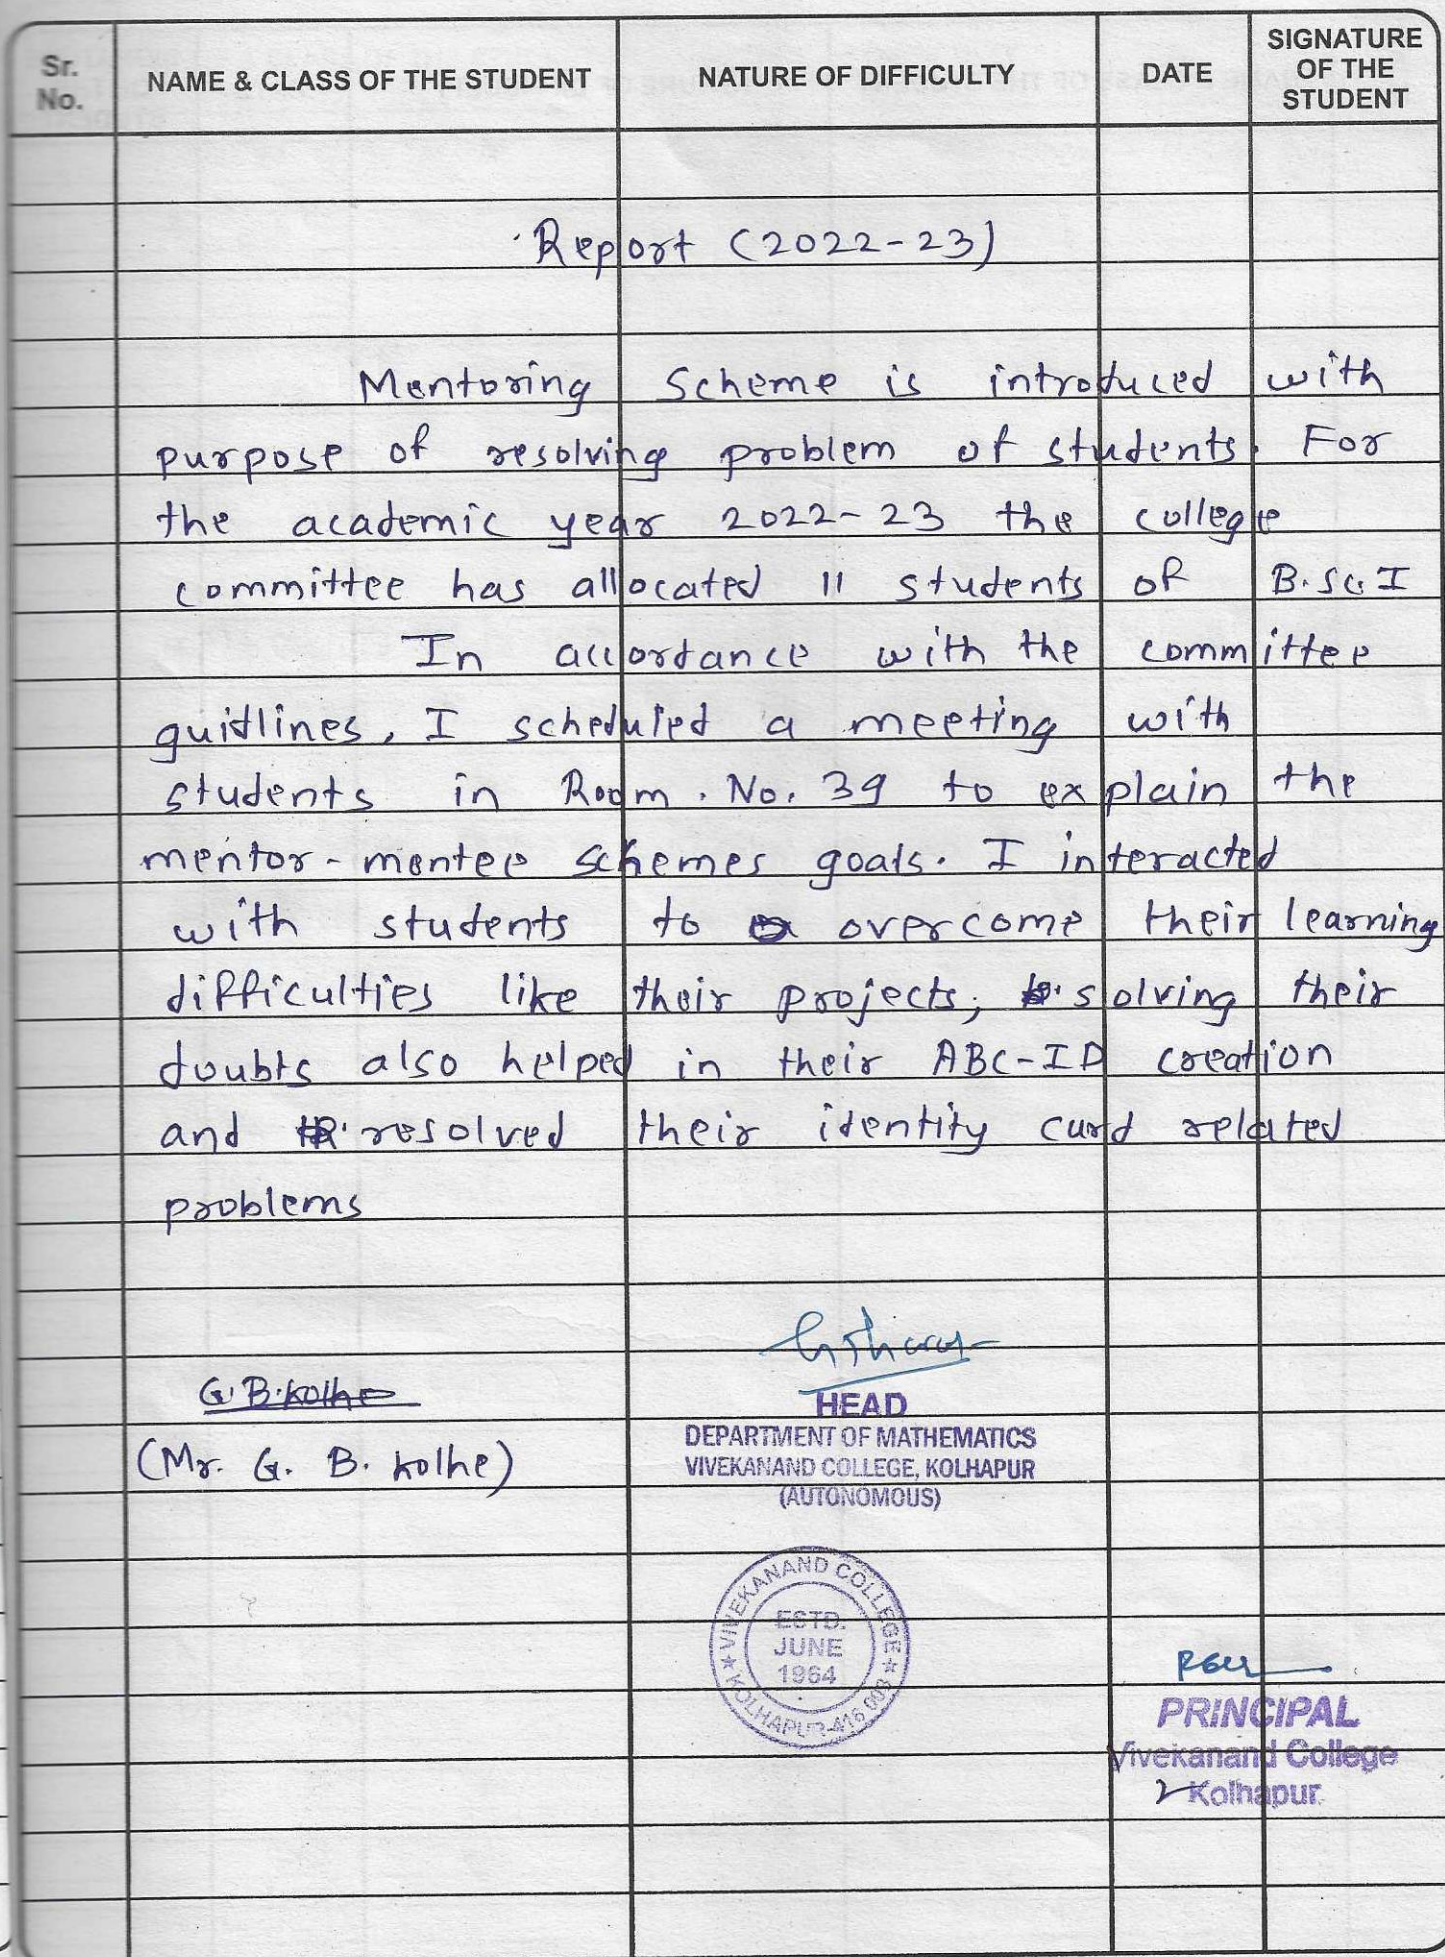 Sr. No.
NAME & CLASS OF THE STUDENT
NATURE OF DIFFICULTY
DATE
SIGNATURE OF THE STUDENT
Report (2022-23)
Mentoring Scheme is introduced with
purpose of resolving problem of students. For
the academic year 2022-23 the college
committee has allocated 11 students of B.Sc.I
In accordance with the committee
guidlines, I scheduled a meeting with
students in Room. No. 39 to explain the
mentor-mentee schemes goals. I interacted
with students to overcome their learning
difficulties like their projects, solving their
doubts also helped in their ABC-ID creation
and resolved their identity card related
problems
G.B.Kolhe
(Mr. G. B. Kolhe)
HEAD
DEPARTMENT OF MATHEMATICS
VIVEKANAND COLLEGE, KOLHAPUR
(AUTONOMOUS)
VIVEKANAND COLLEGE
KOLHAPUR-416 003
ESTD.
JUNE
1964
PRINCIPAL
Vivekanand College
Kolhapur